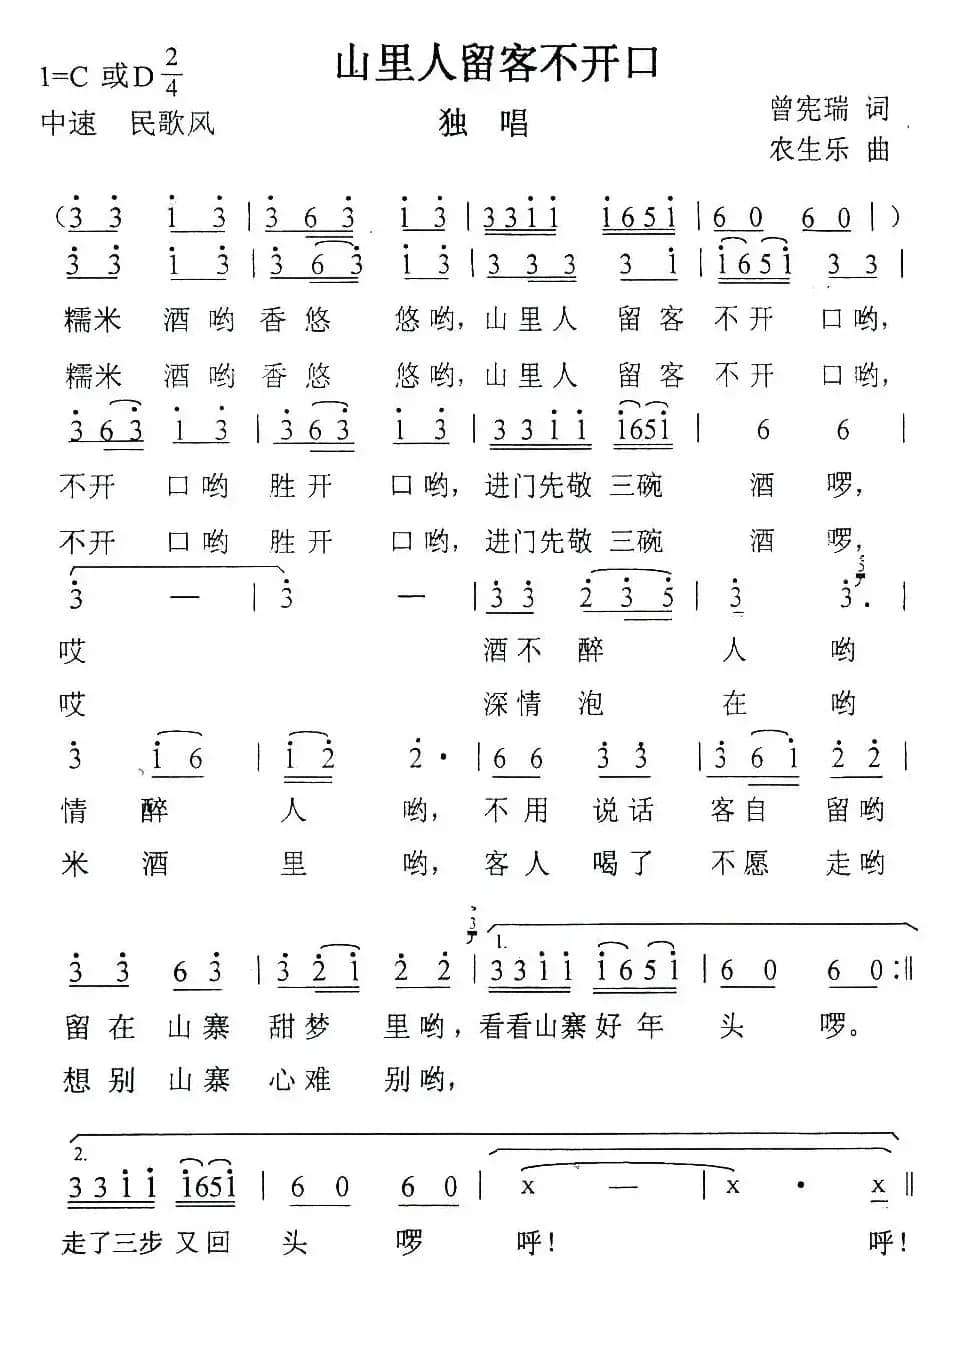 山里人留客不开口
1=C 或D 2/4
中速 民歌风
独 唱
曾宪瑞 词
农生乐 曲
(3 3 1 3 | 3 6 3 1 3 | 3 3 1 1 1 6 5 1 | 6 0 6 0 | )
3 3 1 3 | 3 6 3 1 3 | 3 3 3 3 1 | 1 6 5 1 3 3 |
糯米 酒哟香悠 悠哟,山里人 留客 不开 口哟,
糯米 酒哟香悠 悠哟,山里人 留客 不开 口哟,
3 6 3 1 3 | 3 6 3 1 3 | 3 3 1 1 1 6 5 1 | 6 6 |
不开 口哟 胜开 口哟,进门先敬 三碗 酒 啰,
不开 口哟 胜开 口哟,进门先敬 三碗 酒 啰,
3 — | 3 — | 3 3 2 3 5 | 3 5 3. |
哎 酒不醉 人 哟
哎 深情泡 在 哟
3 1 6 | 1 2 2· | 6 6 3 3 | 3 6 1 2 2 |
情 醉 人 哟, 不用 说话 客自 留哟
米 酒 里 哟, 客人 喝了 不愿 走哟
3 3 6 3 | 3 2 1 2 2 3 | 1. 3 3 1 1 1 6 5 1 | 6 0 6 0 :||
留在 山寨 甜梦 里哟,看看山寨好年 头 啰。
想别 山寨 心难 别哟,
2. 3 3 1 1 1 6 5 1 | 6 0 6 0 | x — | x · x ||
走了三步又回 头 啰 呼! 呼!